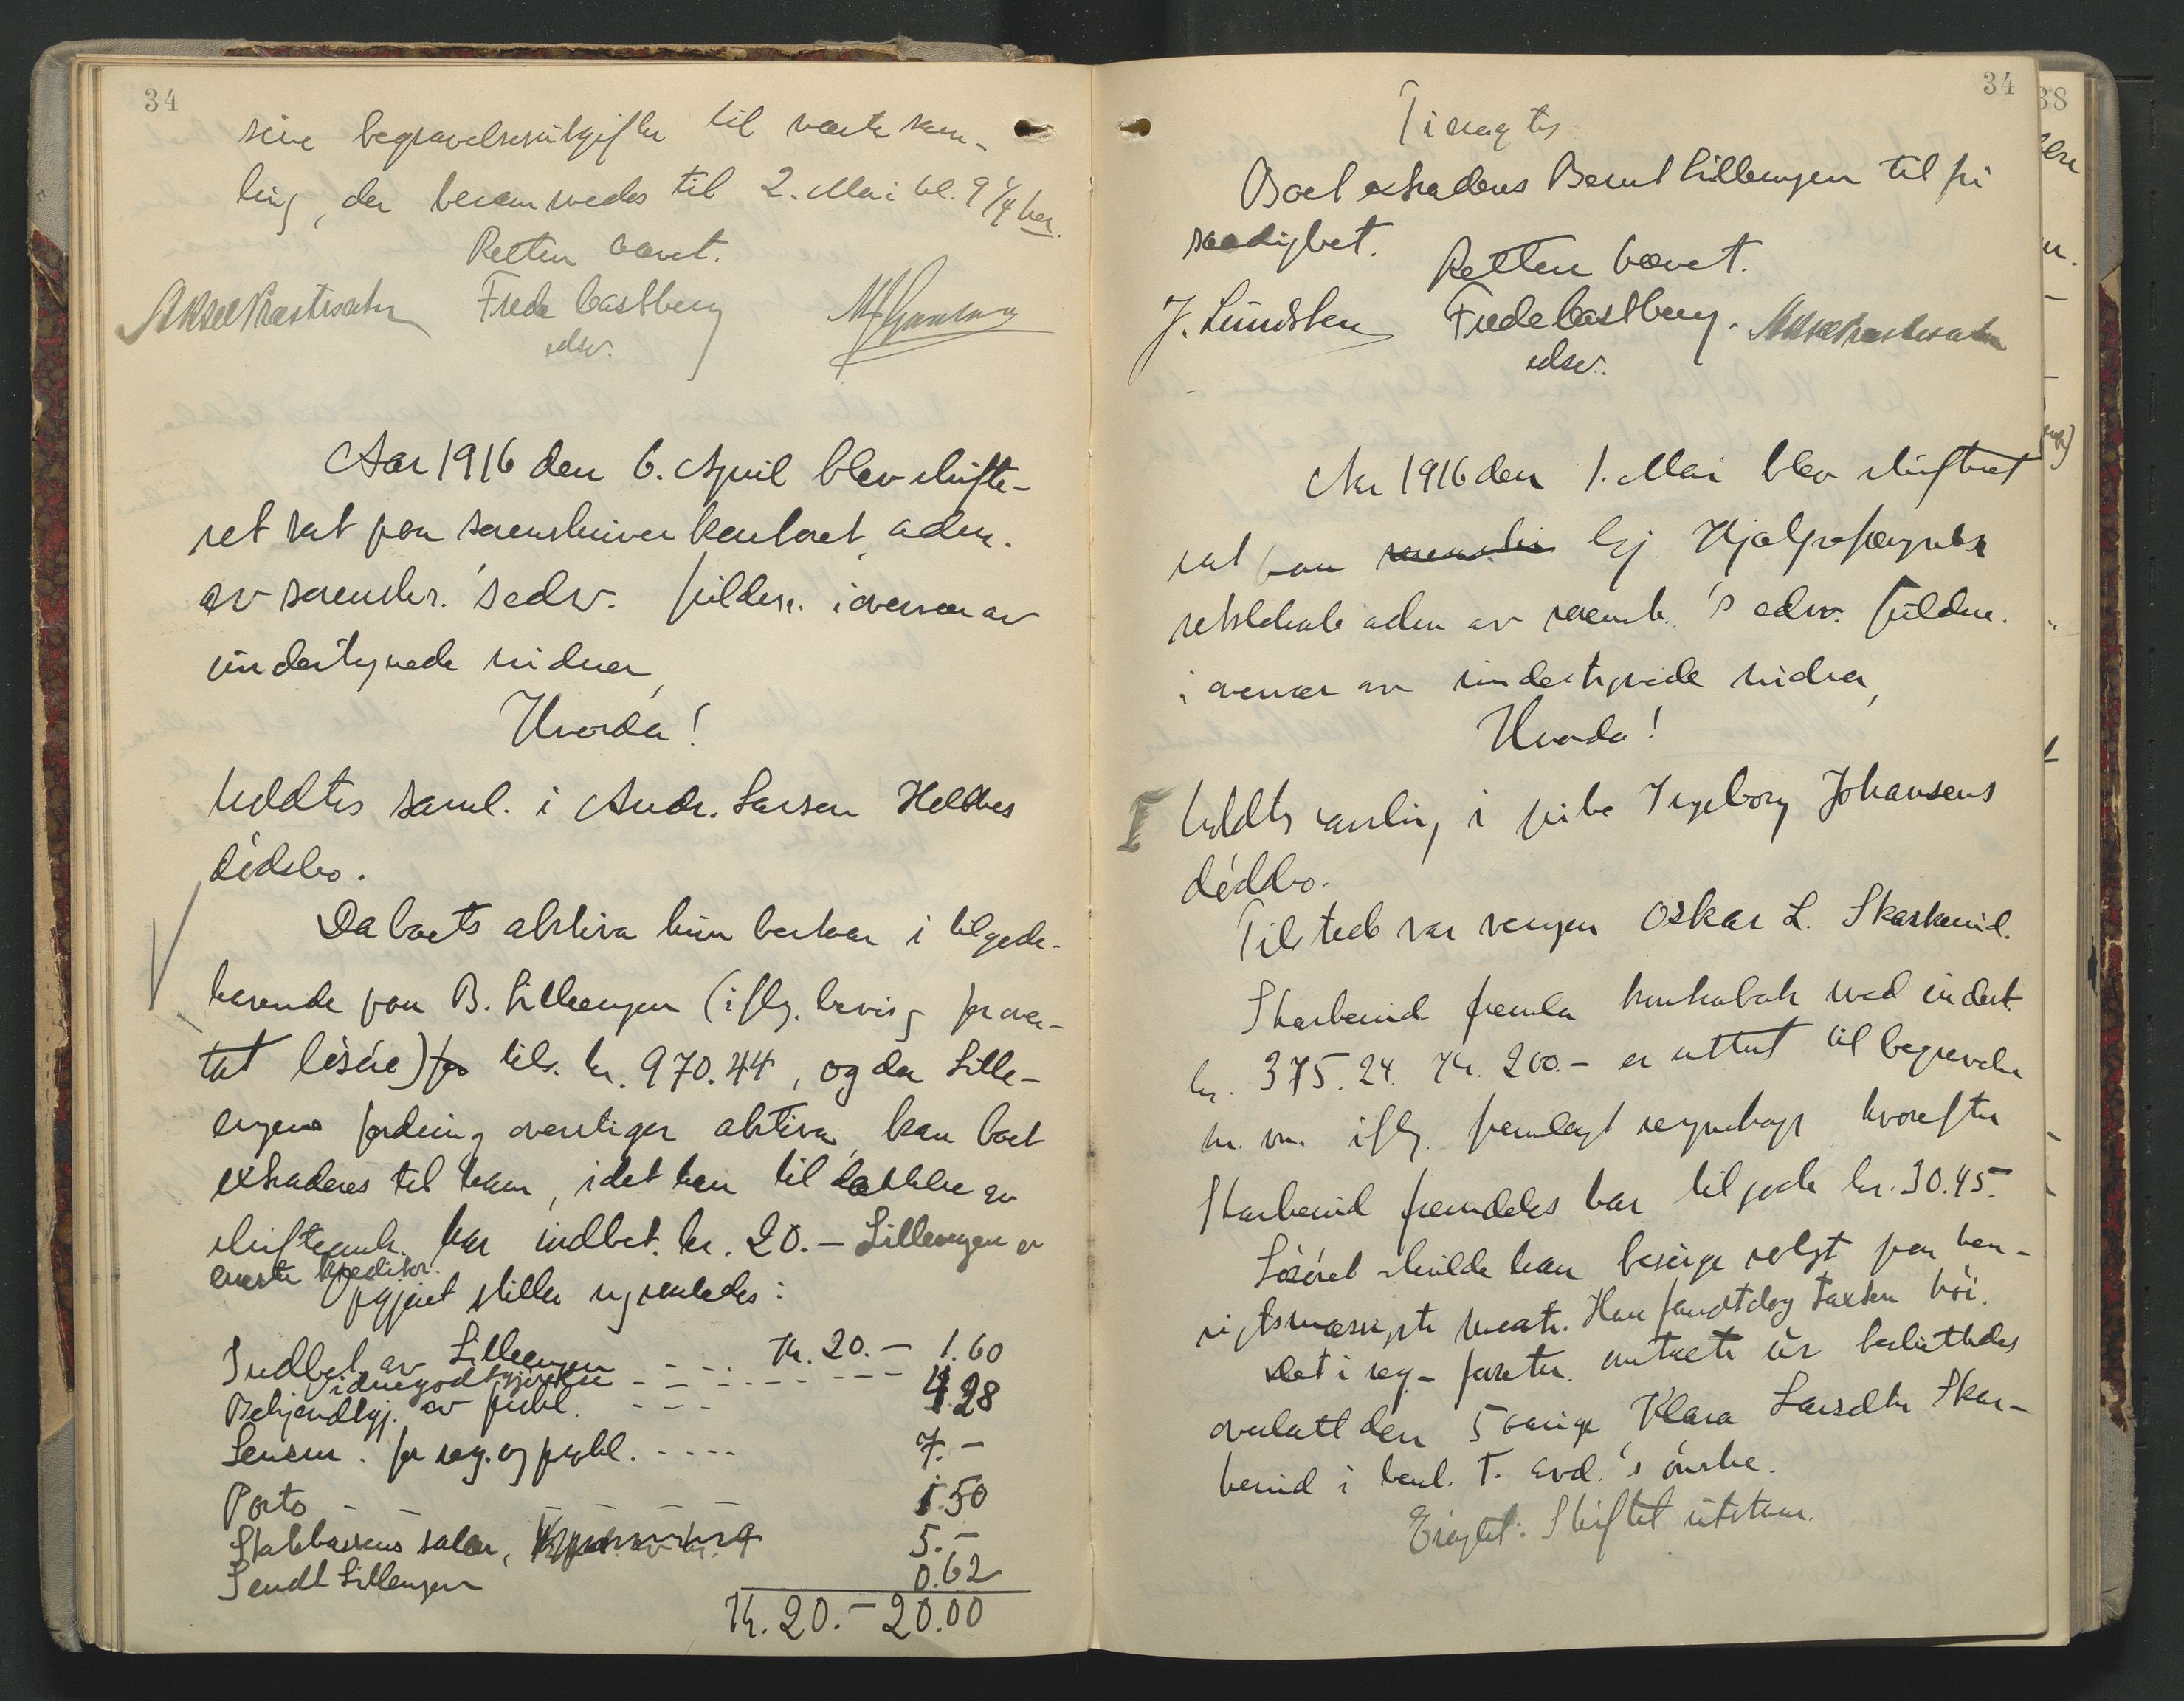 34
sine begravelsesutgifter til næste sam-
ling, der berammedes til 2. Mai kl. 9 1/4 her.
Retten hævet.
Aksel Præstesæter Frede Castberg
edsv.
Aar 1916 den 6. April blev skifte-
ret sat paa sorenskriverkontoret, adm.
av sorenskr. 's edsv. fuldm. i overvær av
undertegnede vidner,
Hvorda!
holdtes saml. i Andr. Larsen
dödsbo.
Da boets aktiva kun bestaar i tilgode-
havende paa B. Lilleengen (iflg. bevis for over-
tat lösöre) til. kr. 970.44, og da Lille-
engens fordring overstiger aktiva, kan boet
extraderes til ham, idet han til dækkelse av
skifteomk. har indbet. kr. 20.- Lilleengen er
eneste kreditor.
Opgjöret stiller sig saaledes:
Indbet. av Lilleengen - - - Kr. 20.- 1.60
Vidnegodtgjörelse - - - - - - -
Bekjendtgj. av publ. - - - 4.28
Sorensr. for reg. og publ. - - - - 7.-
Porto - - - - - 1.50
Statkassens salær, 5.-
Sendt Lillengen 0.62
Kr. 20.- 20.00
34
Tiltraadtes
Boet extraderes Bernt Lillengen til fri
raadighet.
Retten hævet.
J. Lundsten Frede Castberg. Aksel Præstesæter
edsv.
Aar 1916 den 1. Mai blev skifteret
sat paa Hj. Hjalps
retslokale adm. av sorensk. 's edsv. fuldm.
i overvær av undertegnede vidner,
Hvorda!
I holdtes samling i pike Ingeborg Johansens
dödsbo.
Tilstede var vergen Oskar L. Skarberud.
Skarberud fremla kontrabok med indest.
kr. 375.24. Kr. 200.- er uttat til begravelse
m. m. iflg. fremlagt regnskap hvorefter
Skarberud fremdeles har tilgode kr. 30.45.
Lösöret skulde han besörge solgt paa hen-
sigtsmæssigste maate. Han fandt dog taxten höi.
Det i reg.- forretn. omtalte ur besluttedes
overlatt den 5 aarige Klara Larsdtr. Skar-
berud i henh. t. avd.'s önske.
Eragtet: Skiftet utstaar.
38